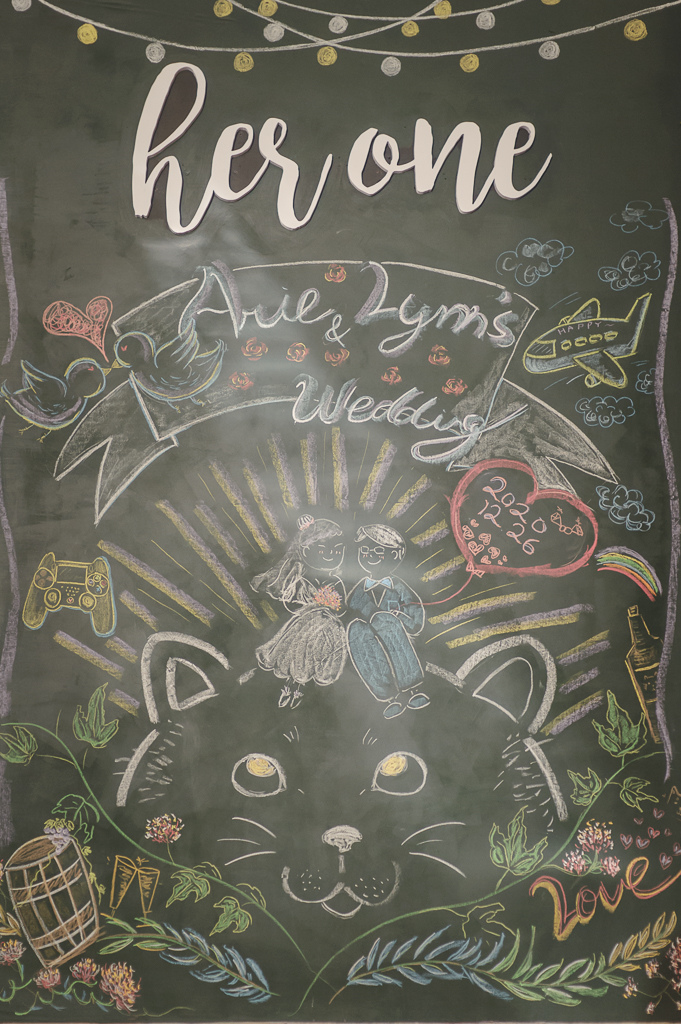 her one
Arie & Lynn's
Wedding
HAPPY
2020
12 26
Love